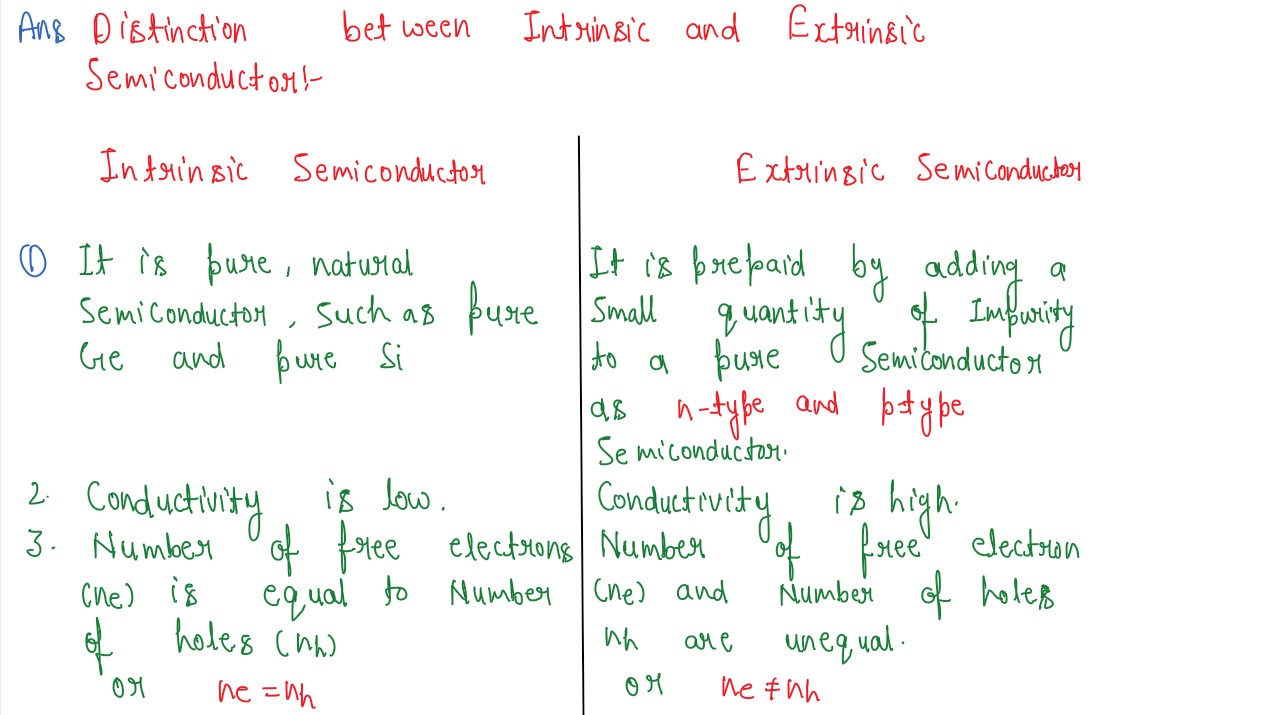 Ans Distinction between Intrinsic and Extrinsic
Semiconductor:-
Intrinsic Semiconductor
① It is pure, natural
Semiconductor, such as pure
Ge and pure Si
2. Conductivity is low.
3. Number of free electrons
(ne) is equal to Number
of holes (nh)
or ne = nh
Extrinsic Semiconductor
It is prepaid by adding a
Small quantity of Impurity
to a pure Semiconductor
as n-type and p-type
Semiconductor.
Conductivity is high.
Number of free electron
(ne) and Number of holes
nh are unequal.
or ne ≠ nh